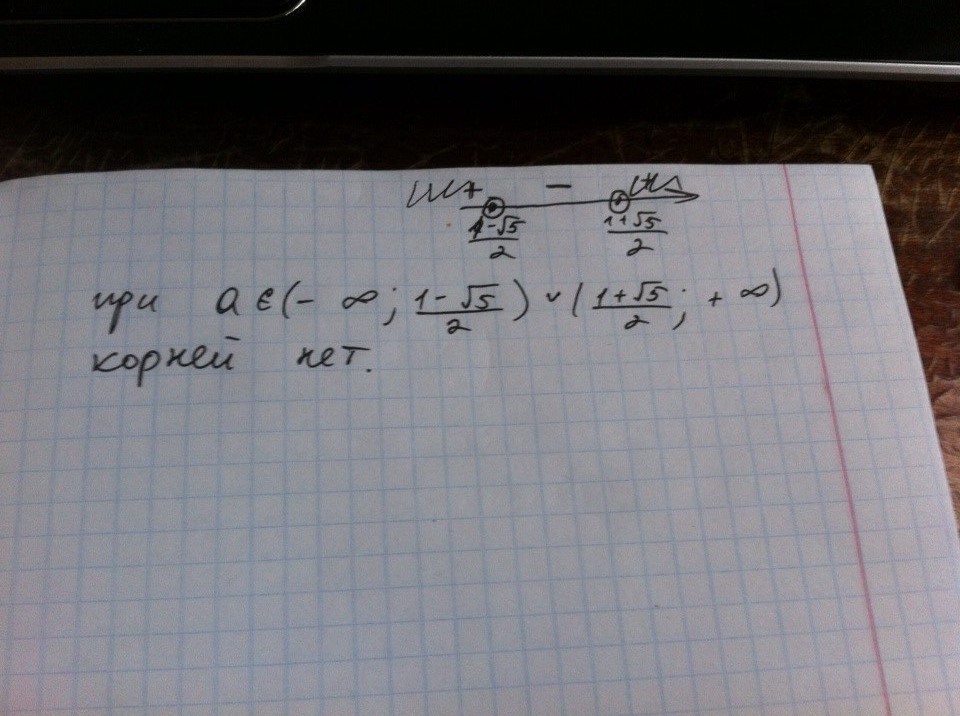 + − +
(1-√5)/2 (1+√5)/2
при a ∈ (- ∞; (1-√5)/2) ∪ ((1+√5)/2; + ∞)
корней нет.